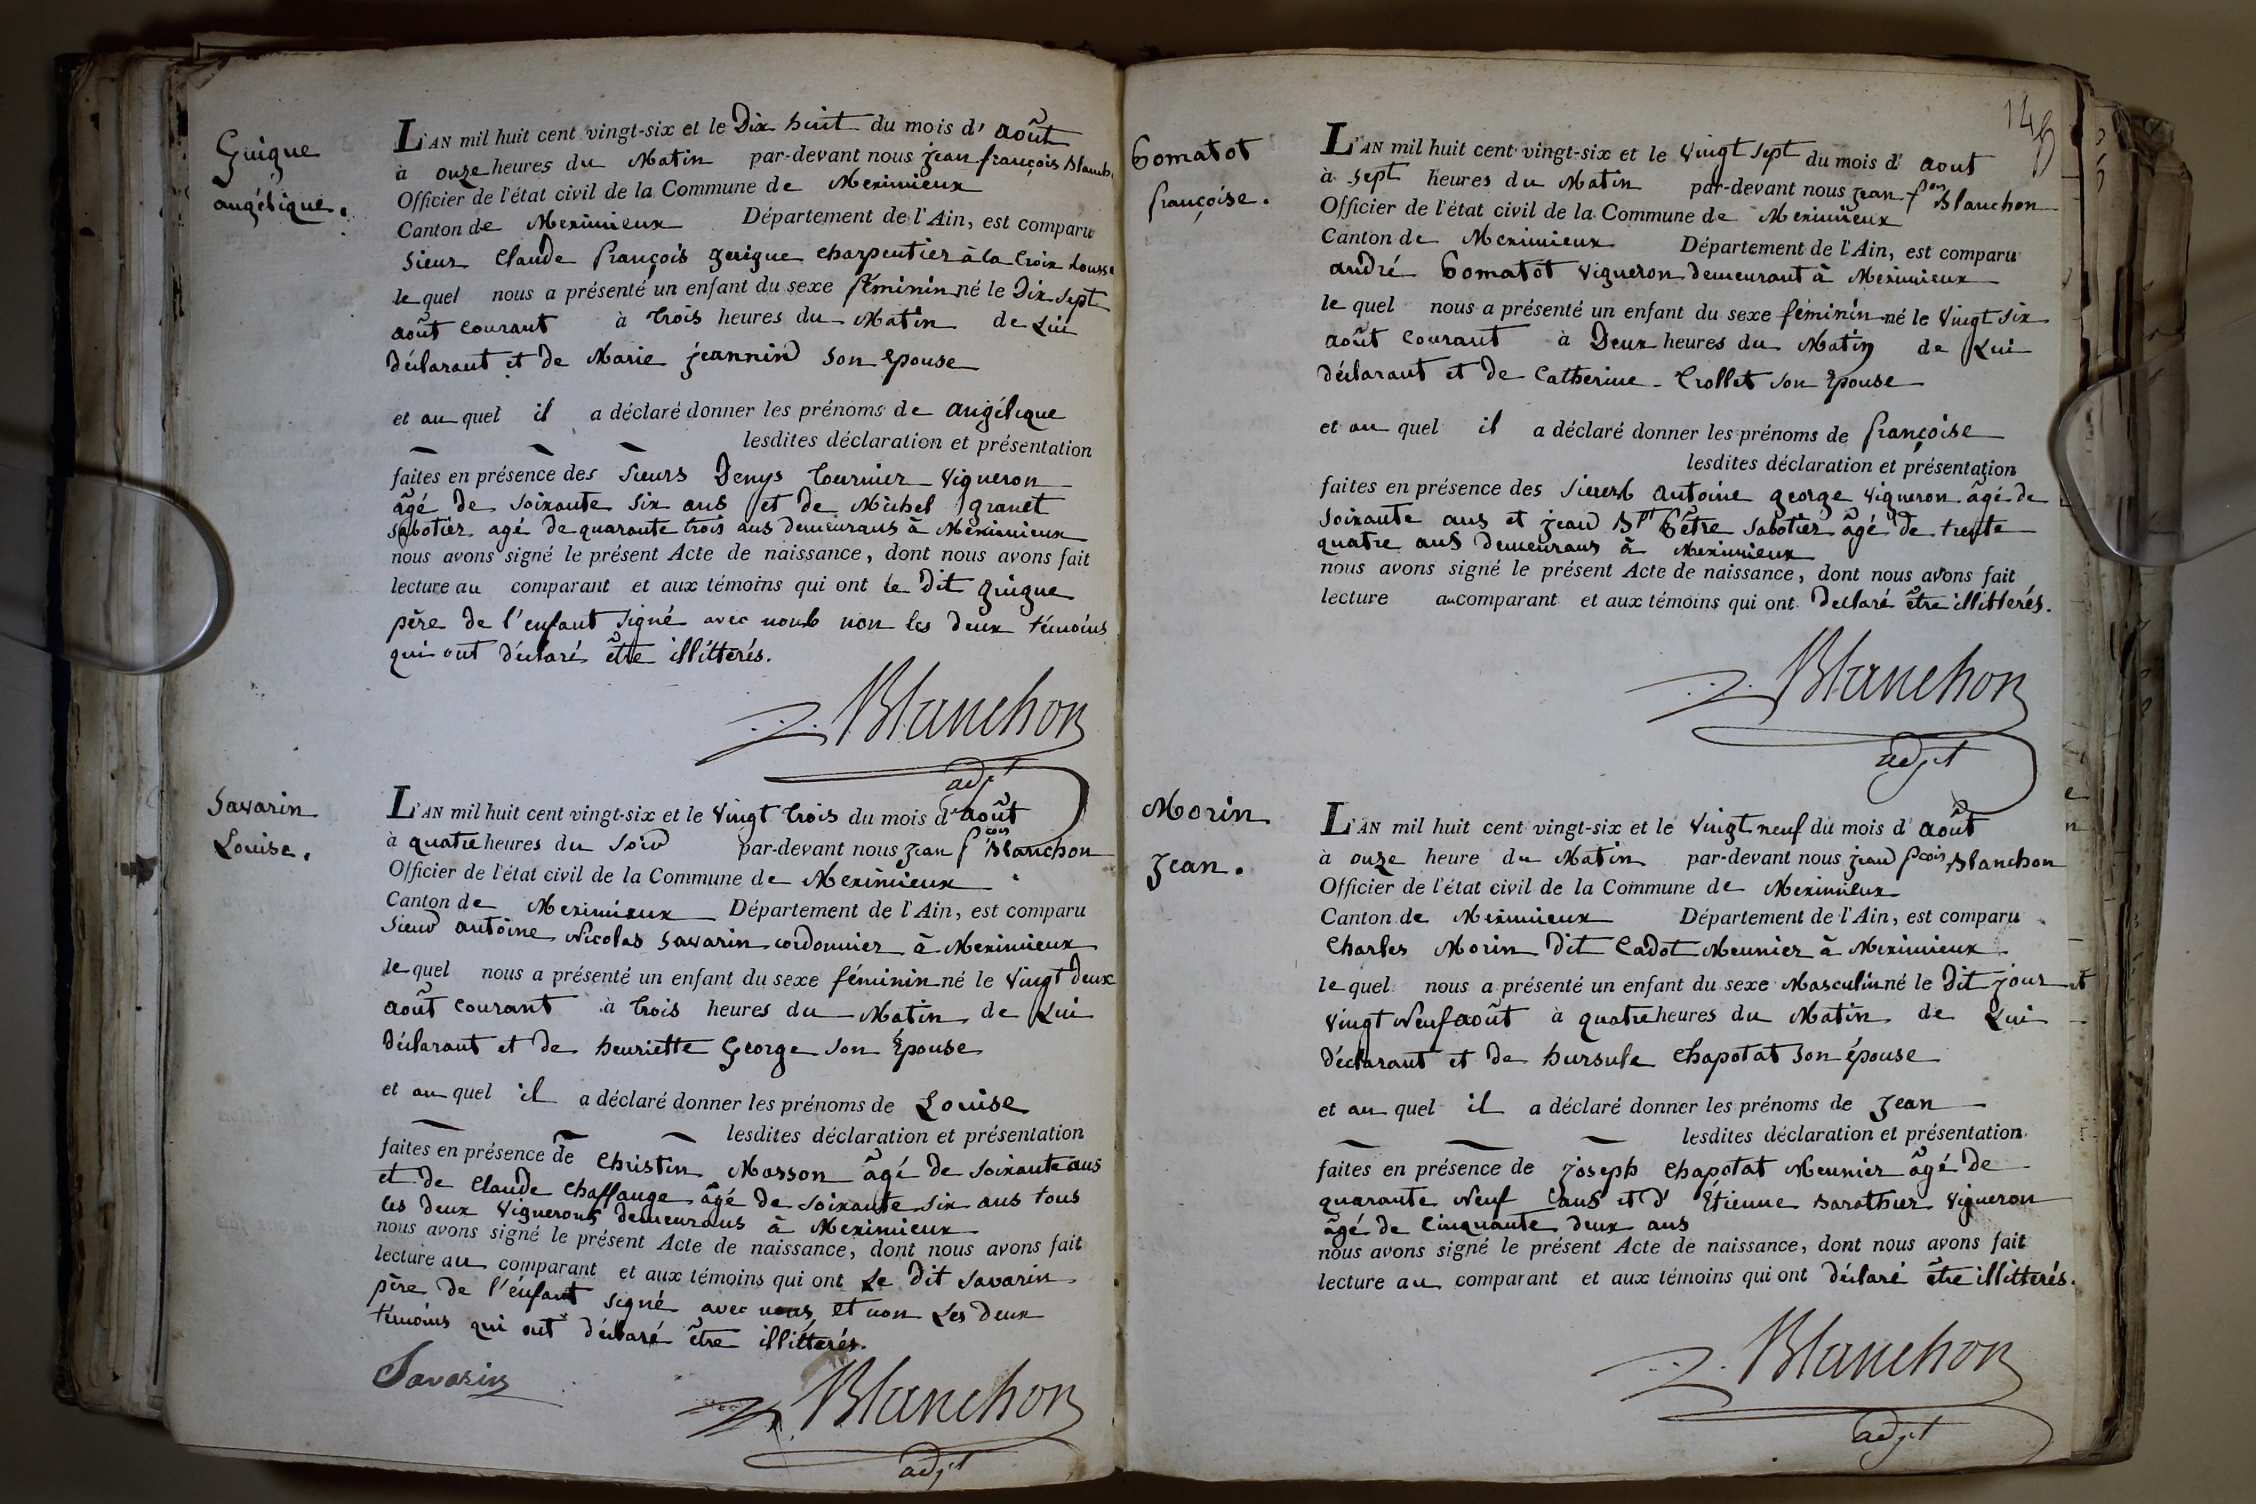 Guigue
angélique.
L'AN mil huit cent vingt-six et le Dix huit du mois d' août
à onze heures du Matin par-devant nous jean françois Blanch
Officier de l'état civil de la Commune de Meximieux
Canton de Meximieux Département de l'Ain, est comparu
Sieur Claude françois guigue charpentier à la Croix rousse
le quel nous a présenté un enfant du sexe féminin né le Dix sept
août courant à trois heures du Matin de Lui
déclarant et de Marie jeannin son Epouse
et au quel il a déclaré donner les prénoms de angélique
lesdites déclaration et présentation
faites en présence des Sieurs Denys tournier Vigneron
âgé de soixante six ans et de Michel granet
sabotier agé de quarante trois ans demeurans à Meximieux
nous avons signé le présent Acte de naissance, dont nous avons fait
lecture au comparant et aux témoins qui ont le Dit guigue
père de l'enfant signé avec nous non les deux témoins
qui ont déclaré être illittérés.
Blanchon
adjt
Savarin
Louise.
L'AN mil huit cent vingt-six et le Vingt trois du mois d' août
à quatre heures du Soir par-devant nous jean fcois Blanchon
Officier de l'état civil de la Commune de Meximieux
Canton de Meximieux Département de l'Ain, est comparu
Sieur antoine Nicolas Savarin cordonnier à Meximieux
le quel nous a présenté un enfant du sexe féminin né le Vingt deux
août courant à trois heures du Matin de Lui
déclarant et de henriette George son Épouse
et au quel il a déclaré donner les prénoms de Louise
lesdites déclaration et présentation
faites en présence de Christin Masson âgé de soixante ans
et de Claude Chaffange âgé de soixante six ans tous
les deux Vignerons demeurans à Meximieux
nous avons signé le présent Acte de naissance, dont nous avons fait
lecture au comparant et aux témoins qui ont Le Dit Savarin
père de l'enfant signé avec nous et non Les deux
témoins qui ont déclaré être illittérés.
Savarin
Blanchon
adjt
Gomatot
françoise.
L'AN mil huit cent vingt-six et le Vingt sept du mois d' aout
à sept heures du Matin par-devant nous jean fcois Blanchon
Officier de l'état civil de la Commune de Meximieux
Canton de Meximieux Département de l'Ain, est comparu
andré Gomatot Vigneron demeurant à Meximieux
le quel nous a présenté un enfant du sexe féminin né le Vingt six
août courant à Deux heures du Matin de Lui
déclarant et de Catherine Trollet son Epouse
et au quel il a déclaré donner les prénoms de françoise
lesdites déclaration et présentation
faites en présence des Sieurs antoine george Vigneron âgé de
soixante ans et jean Bpt Gêtre sabotier âgé de trente
quatre ans demeurans à Meximieux
nous avons signé le présent Acte de naissance, dont nous avons fait
lecture au comparant et aux témoins qui ont Déclaré être illittérés.
Blanchon
adjt
Morin
Jean.
L'AN mil huit cent vingt-six et le Vingt neuf du mois d' août
à onze heure du Matin par-devant nous jean fcois Blanchon
Officier de l'état civil de la Commune de Meximieux
Canton de Meximieux Département de l'Ain, est comparu
Charles Morin dit Cadot Meunier à Meximieux
le quel nous a présenté un enfant du sexe Masculin né le Dit jour
Vingt Neuf août à quatre heures du Matin de Lui
déclarant et de hursule Chapotat son épouse
et au quel il a déclaré donner les prénoms de Jean
lesdites déclaration et présentation
faites en présence de Joseph Chapotat Meunier âgé de
quarante Neuf ans et d' Étienne Barathier Vigneron
âgé de Cinquante deux ans
nous avons signé le présent Acte de naissance, dont nous avons fait
lecture au comparant et aux témoins qui ont déclaré être illittérés.
Blanchon
adjt